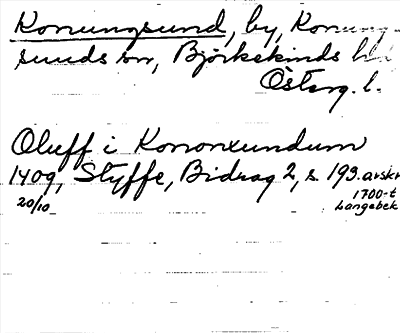 Konungsund, by, Konung-
sunds sn, Björkekinds hd
Österg. l.
Oluff i Kononxundum
1409, Styffe, Bidrag 2, s. 193. avskr
20/10 1700-t
Langebek